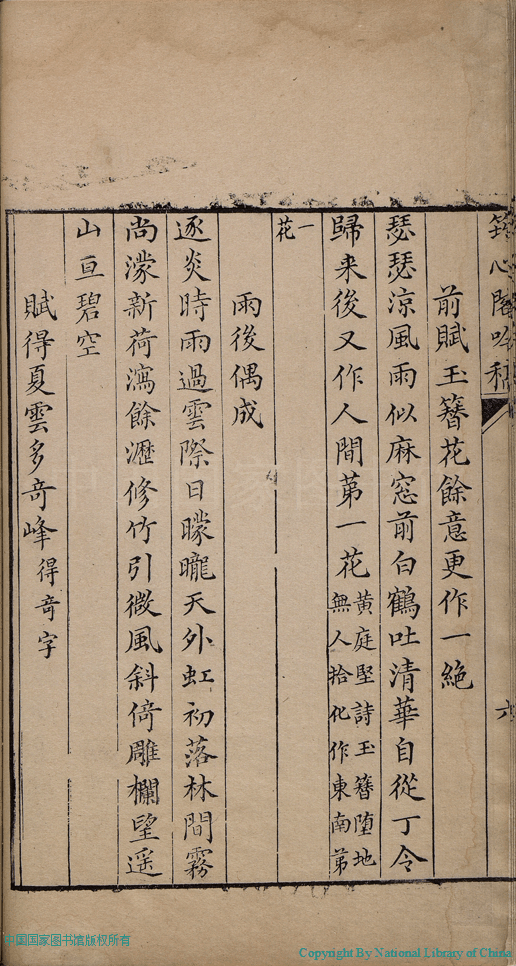 筠心閣吟稿
六
前賦玉簪花餘意更作一絶
瑟瑟涼風雨似麻窓前白鶴吐清華自從丁令
歸来後又作人間苐一花黄庭堅詩玉簪堕地
無人拾化作東南苐
一花
雨後偶成
逐炎時雨過雲際日曚曨天外虹初落林間霧
尚濛新荷瀉餘瀝修竹引微風斜倚雕欄望遥
山亘碧空
賦得夏雲多竒峰得竒字
中国国家图书馆版权所有
Copyright By National Library of China